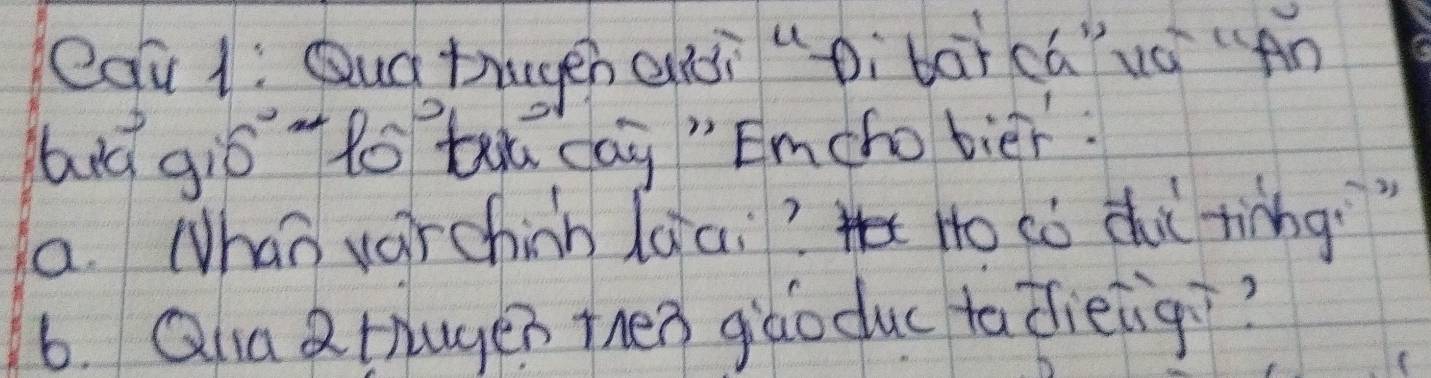 Câu 1: Qua truyện cười "Đi bắt cá" và "Ăn
bưa giỗ" "Rổ tựa cây" Em cho biết:
a. Nhân vật chính là ai? Họ có đức tính gì"
b. Qua 2 truyện trên giáo dục ta điều gì?